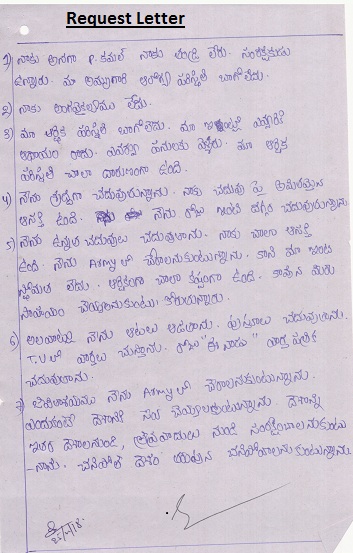 Request Letter
1) నాకు అనగా P. కమల్ నాకు తండ్రి లేరు. సంరక్షకుడు
ఉన్నారు. మా అమ్మగారి ఆరోగ్య పరిస్థితి బాగోలేదు.
2) నాకు అంగవైకల్యము లేదు.
3) మా ఆర్థిక పరిస్థితి బాగోలేదు. మా ఎవ్వరికి
ఆదాయం రాదు. పనులకు వెళ్ళరు. మా ఆర్థిక
పరిస్థితి చాలా దారుణంగా ఉంది.
4) నేను చదువుచున్నాను. నాకు చదువు పై అమితమైన
ఆసక్తి ఉంది. నేను రోజు ఇంటి దగ్గర చదువుచున్నాను
5) నేను ఉన్నత చదువులు చదువుతాను. నాకు చాలా ఆసక్తి
ఉంది. నేను Army లో చేరాలనుకుంటున్నాను. కాని మా ఇంట
స్తోమత లేదు. ఆర్థికంగా చాలా కష్టంగా ఉంది. కావున మీరు
సాయం
6) అలవాట్లు నేను ఆటలు ఆడతాను. పుస్తకాలు చదువుతాను.
T.V లో వార్తలు చూస్తాను. రోజు "ఈ నాడు" వార్త పత్రిక
చదువుతాను.
7) నేను Army లో చేరాలనుకుంటున్నాను.
ఎందుకంటే దేశానికి సేవ చేయాలనుకుంటున్నాను. దేశాన్ని
ఇతర దేశాలనుండి, నుండి సంరక్షించాలనుకుంటు
-న్నాను. దేశం